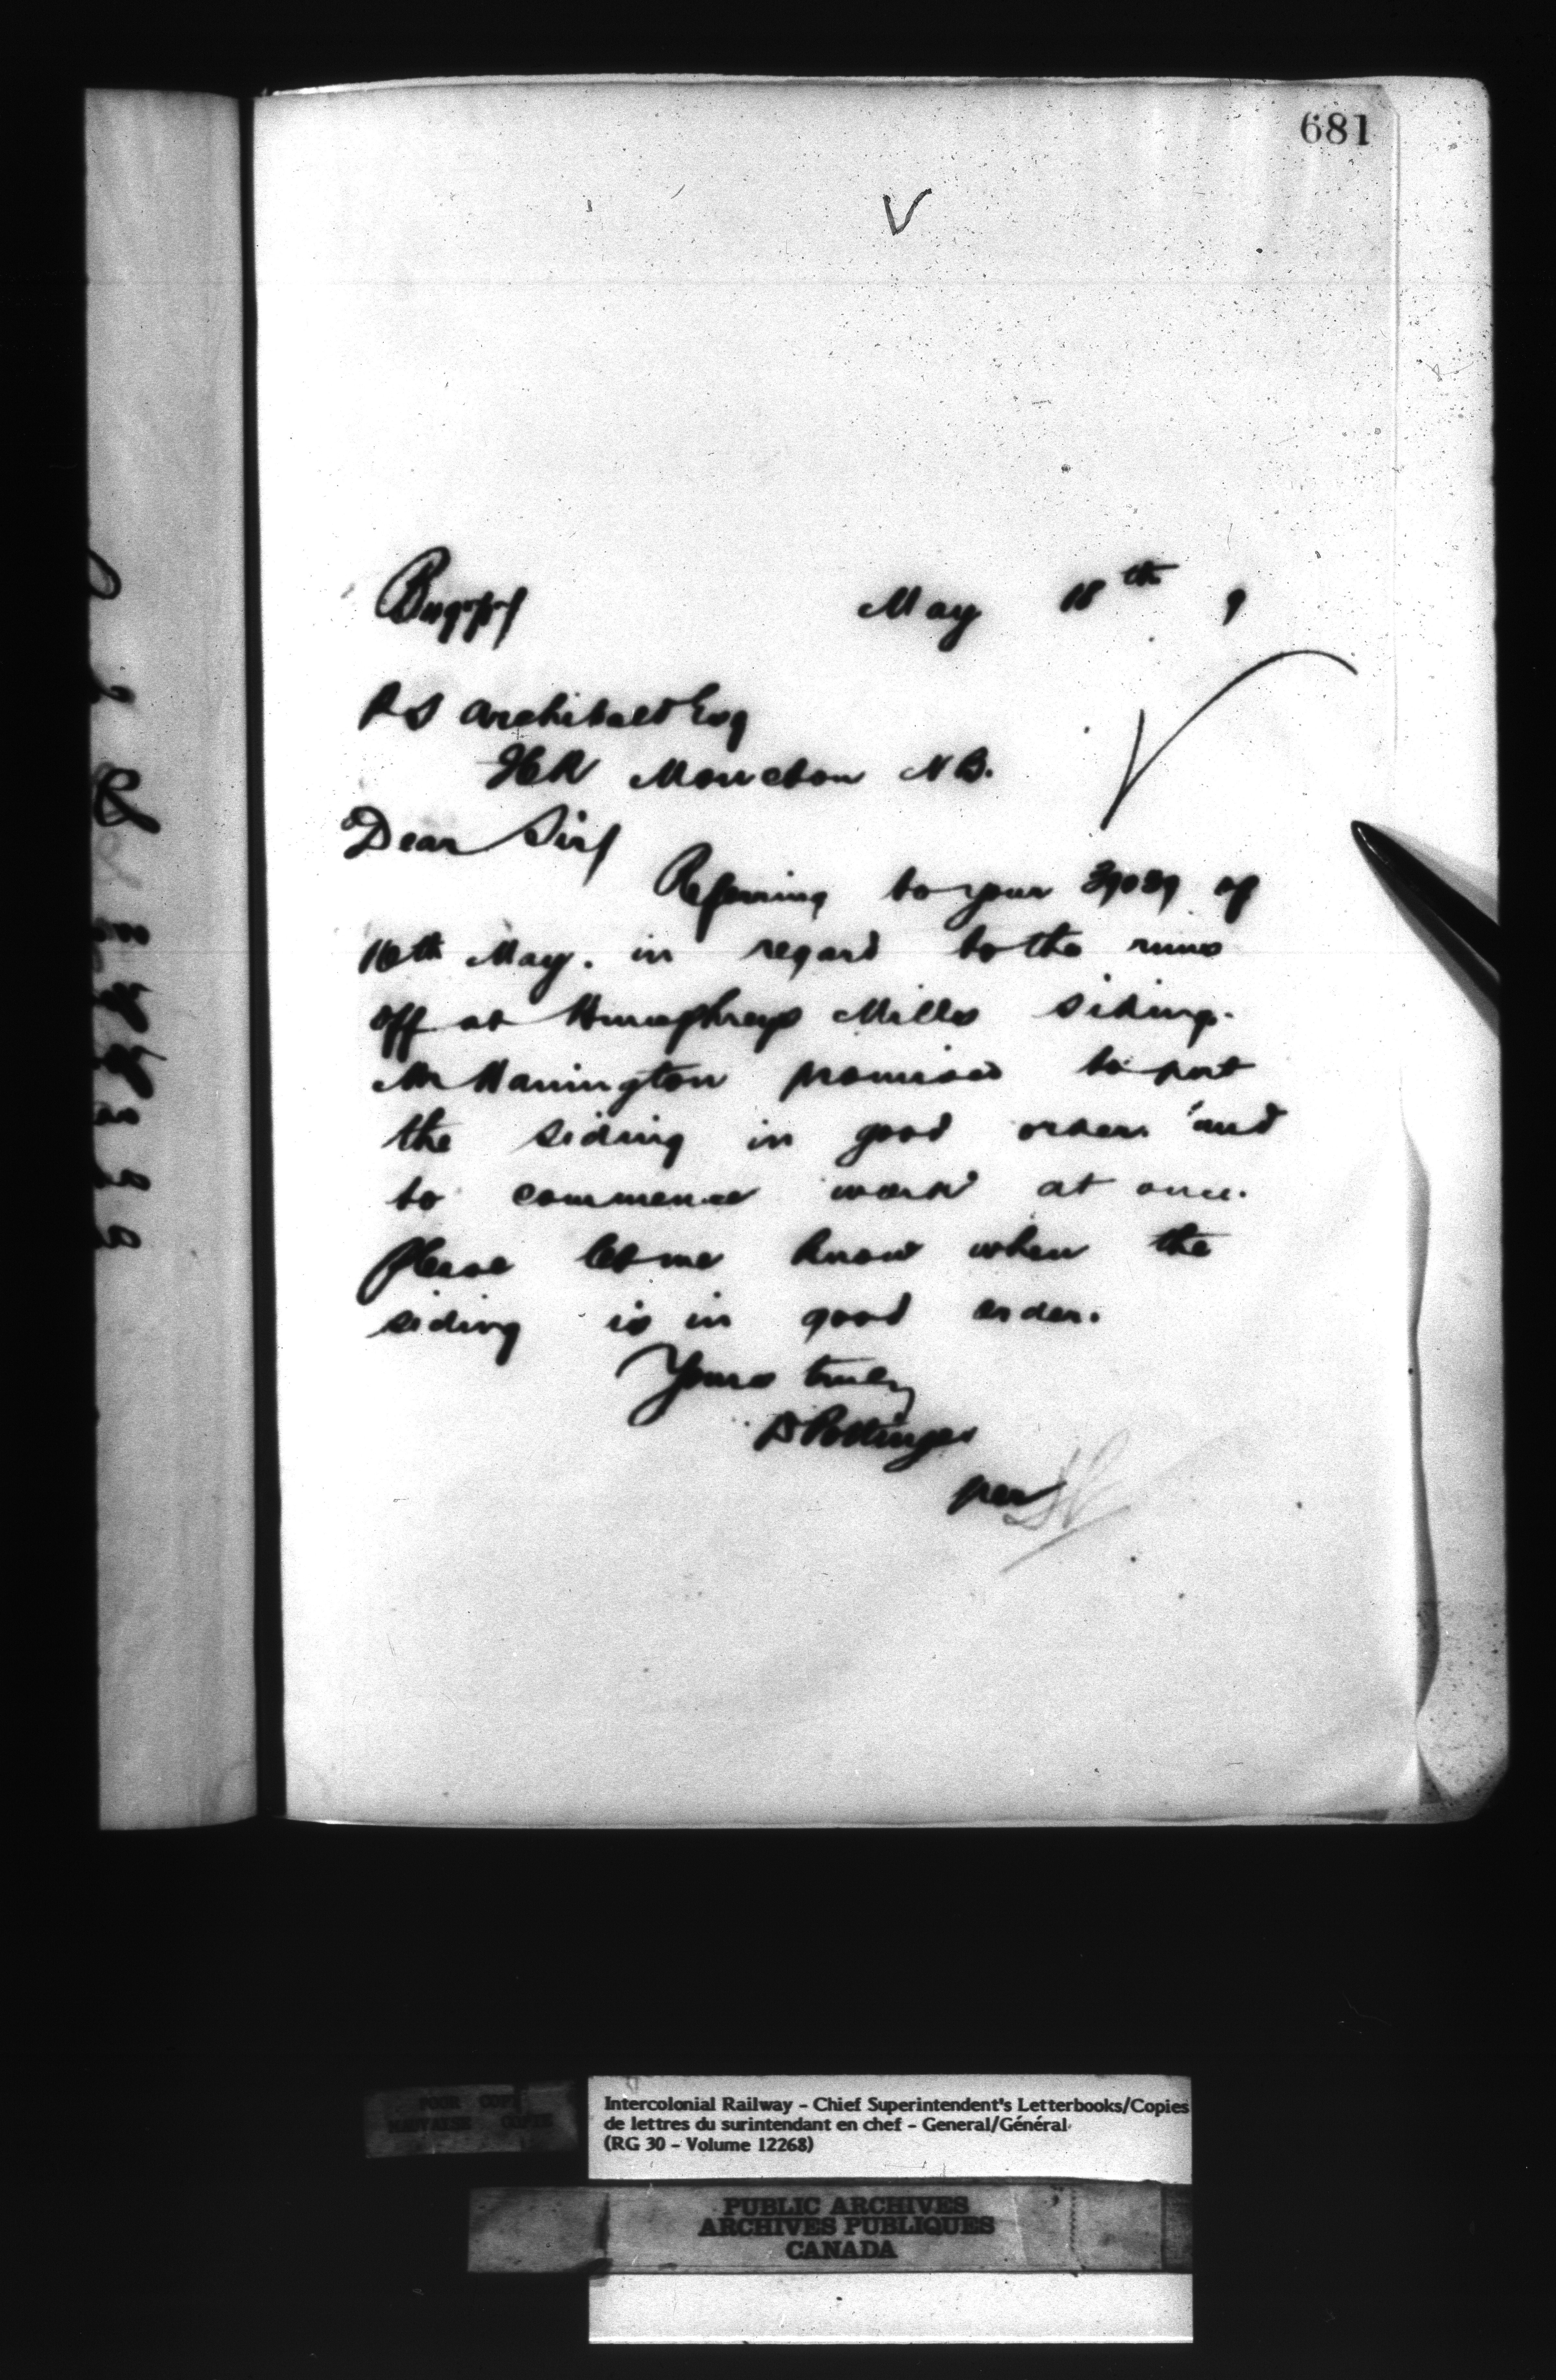 681
May 18th 9
P S Archibald Esq
ICR Moncton N B.
Dear Sir/
Referring to your 39039 of
16th May. in regard to the runs
off at Humphreys Mills siding.
Mr Hanington promised to put
the siding in good order and
to commence work at once.
Please let me know when the
siding is in good order.
Yours truly
D Pottinger
per
Intercolonial Railway – Chief Superintendent's Letterbooks/Copies
de lettres du surintendant en chef – General/Général
(RG 30 – Volume 12268)
POOR COPY
MAUVAISE COPIE
PUBLIC ARCHIVES
ARCHIVES PUBLIQUES
CANADA